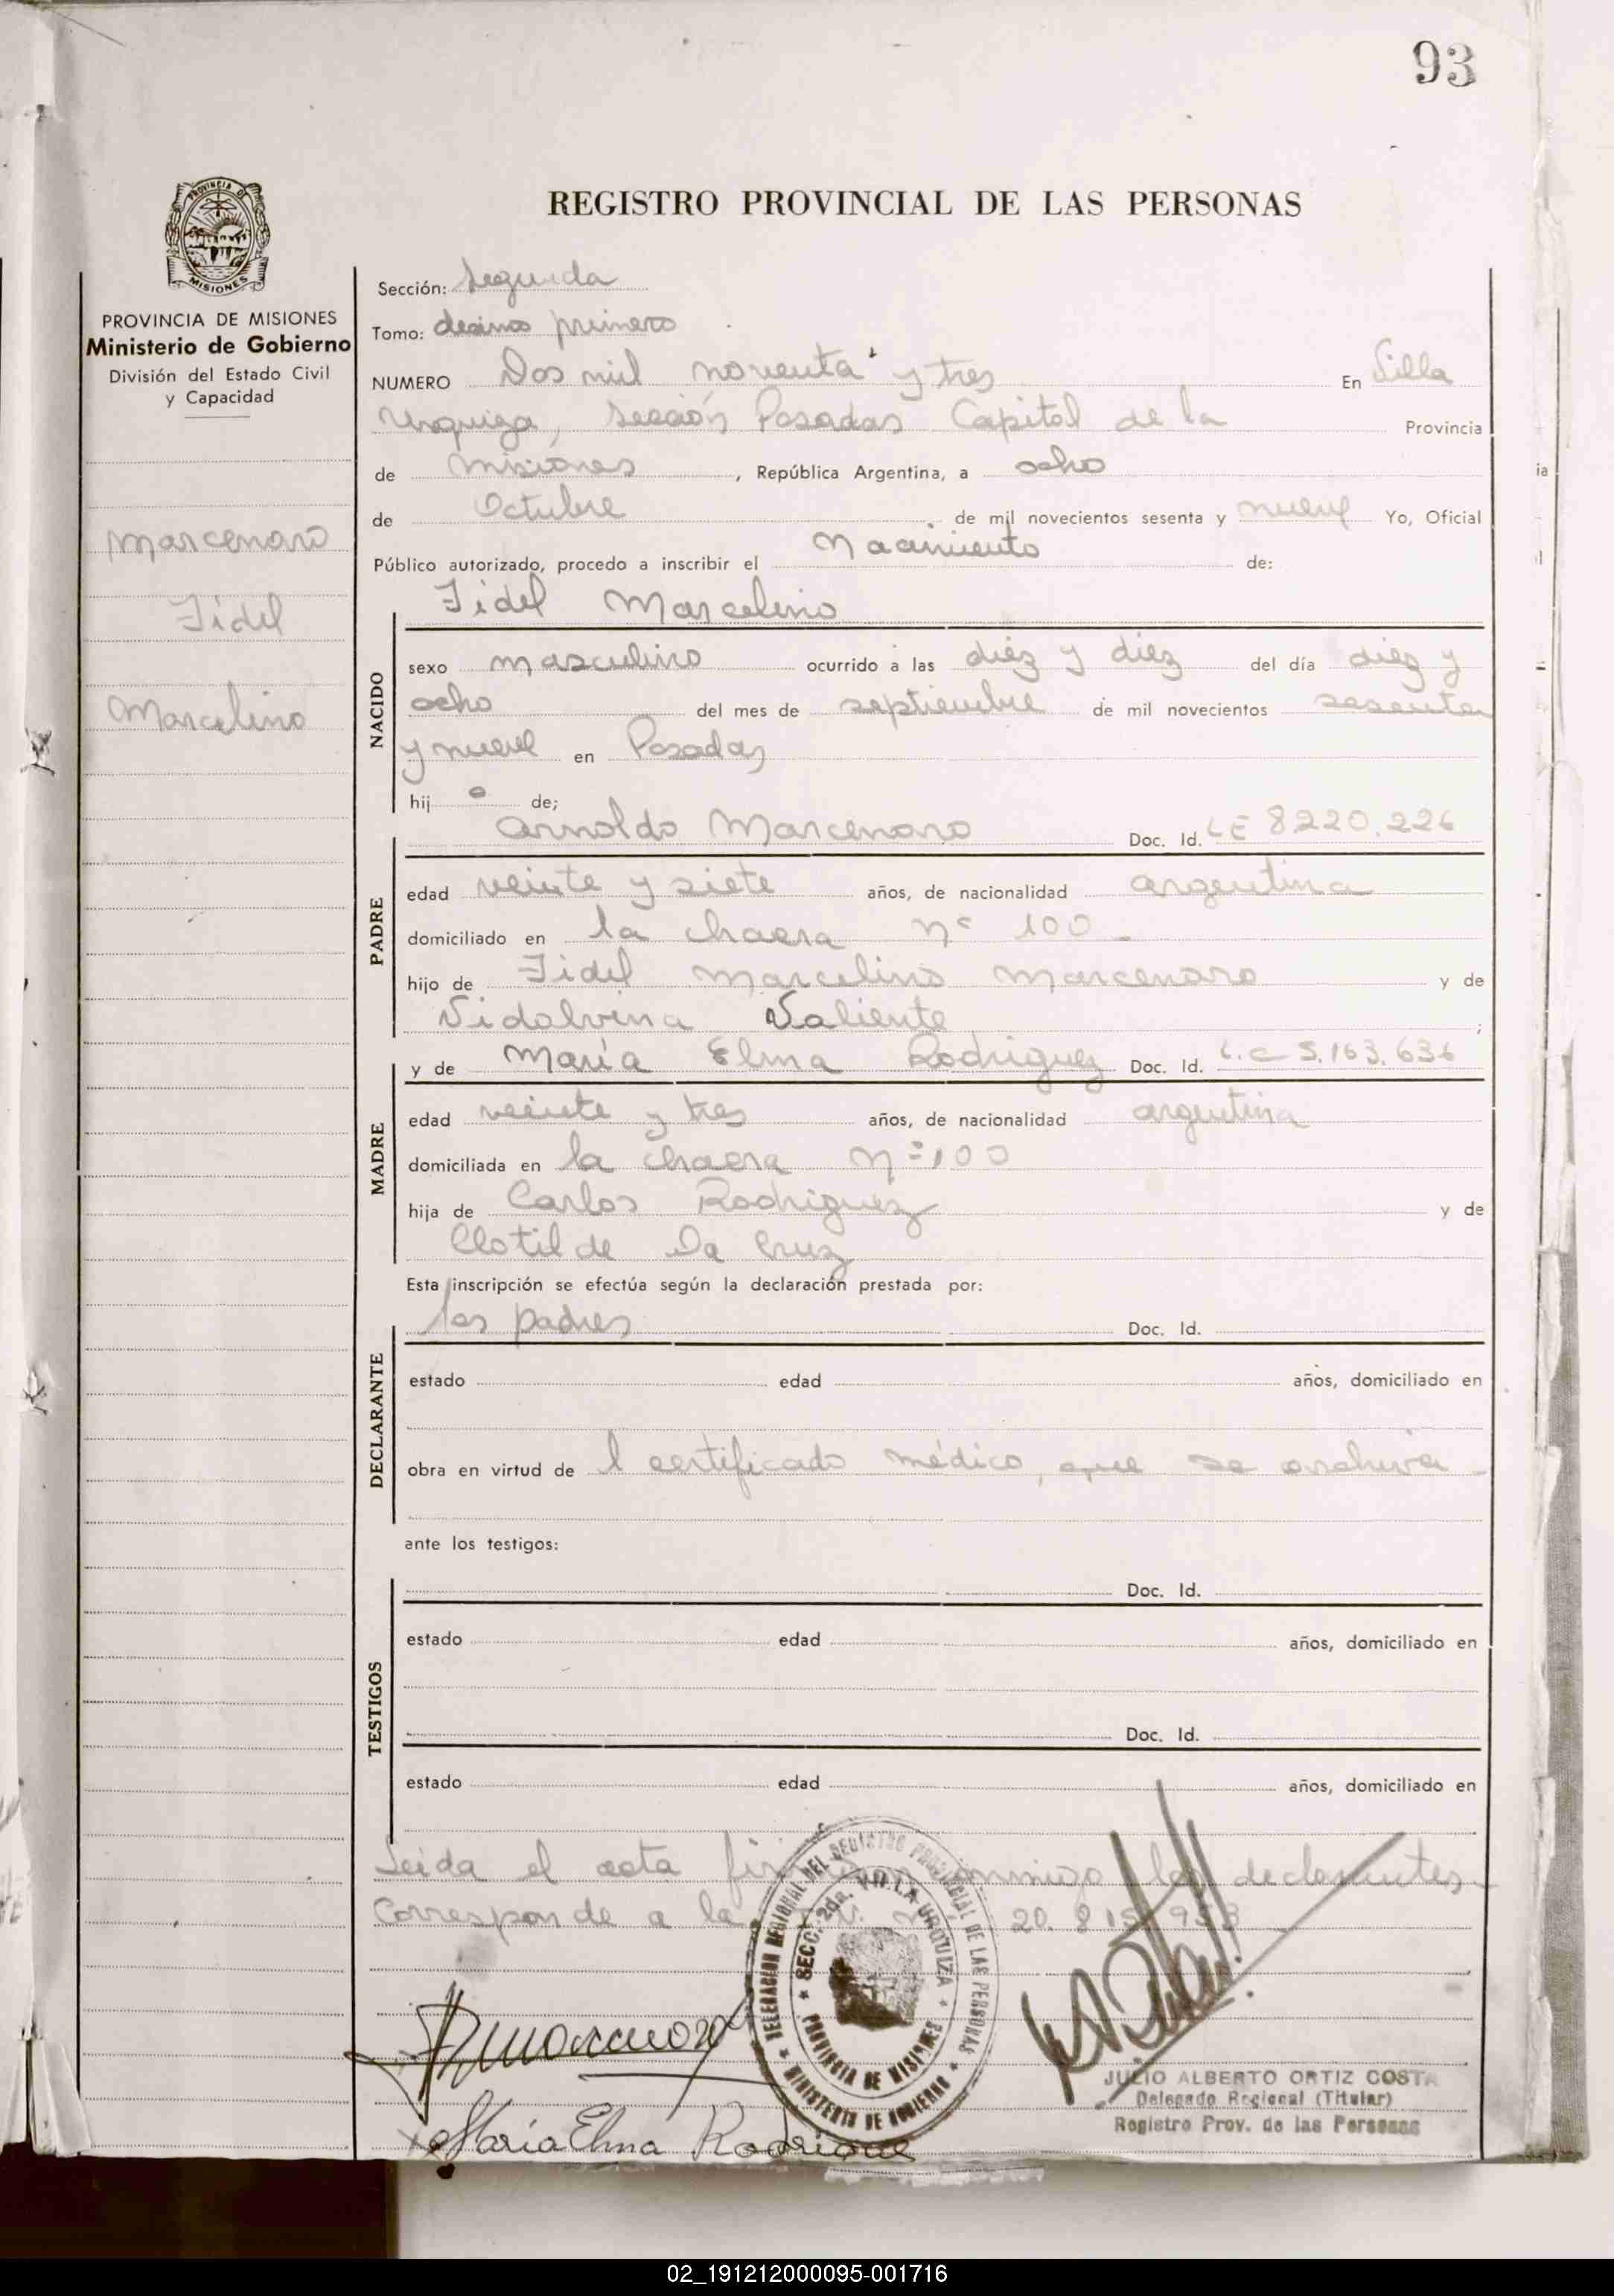 93
REGISTRO PROVINCIAL DE LAS PERSONAS
PROVINCIA DE
MISIONES
PROVINCIA DE MISIONES
Ministerio de Gobierno
División del Estado Civil
y Capacidad
Marcenaro
Fidel
Marcelino
Sección: Segunda
Tomo: decimo primero
NUMERO Dos mil noventa y tres En Villa
Urquiza, Sección Posadas Capital de la Provincia
de Misiones, República Argentina, a ocho
de Octubre de mil novecientos sesenta y nueve Yo, Oficial
Público autorizado, procedo a inscribir el Nacimiento de:
Fidel Marcelino
NACIDO
sexo masculino ocurrido a las diéz y diéz del día diez y
ocho del mes de septiembre de mil novecientos sesenta
y nueve en Posadas
hij o de;
Arnoldo Marcenaro Doc. Id. LE 8220.226
PADRE
edad veinte y siete años, de nacionalidad argentina
domiciliado en la chacra nº 100
hijo de Fidel Marcelino Marcenaro y de
Vidalvina Valiente ;
y de María Elma Rodriguez Doc. Id. L.C 5.163.636
MADRE
edad veinte y tres años, de nacionalidad argentina
domiciliada en la chacra nº 100
hija de Carlos Rodriguez y de
Clotilde Da Cruz
Esta inscripción se efectúa según la declaración prestada por:
los padres Doc. Id.
DECLARANTE
estado edad años, domiciliado en
obra en virtud de l certificado médico, que se archiva
ante los testigos:
Doc. Id.
TESTIGOS
estado edad años, domiciliado en
Doc. Id.
estado edad años, domiciliado en
Leida el acta conmigo los declarantes
Corresponde a la 20.
DELEGACION REGIONAL DEL REGISTRO PROVINCIAL DE LAS PERSONAS
MINISTERIO DE GOBIERNO
SECC. 2da. VILLA URQUIZA
PROVINCIA DE MISIONES
María Elma Rodrigue
JULIO ALBERTO ORTIZ COSTA
Delegado Regional (Titular)
Registro Prov. de las Personas
02_191212000095-001716